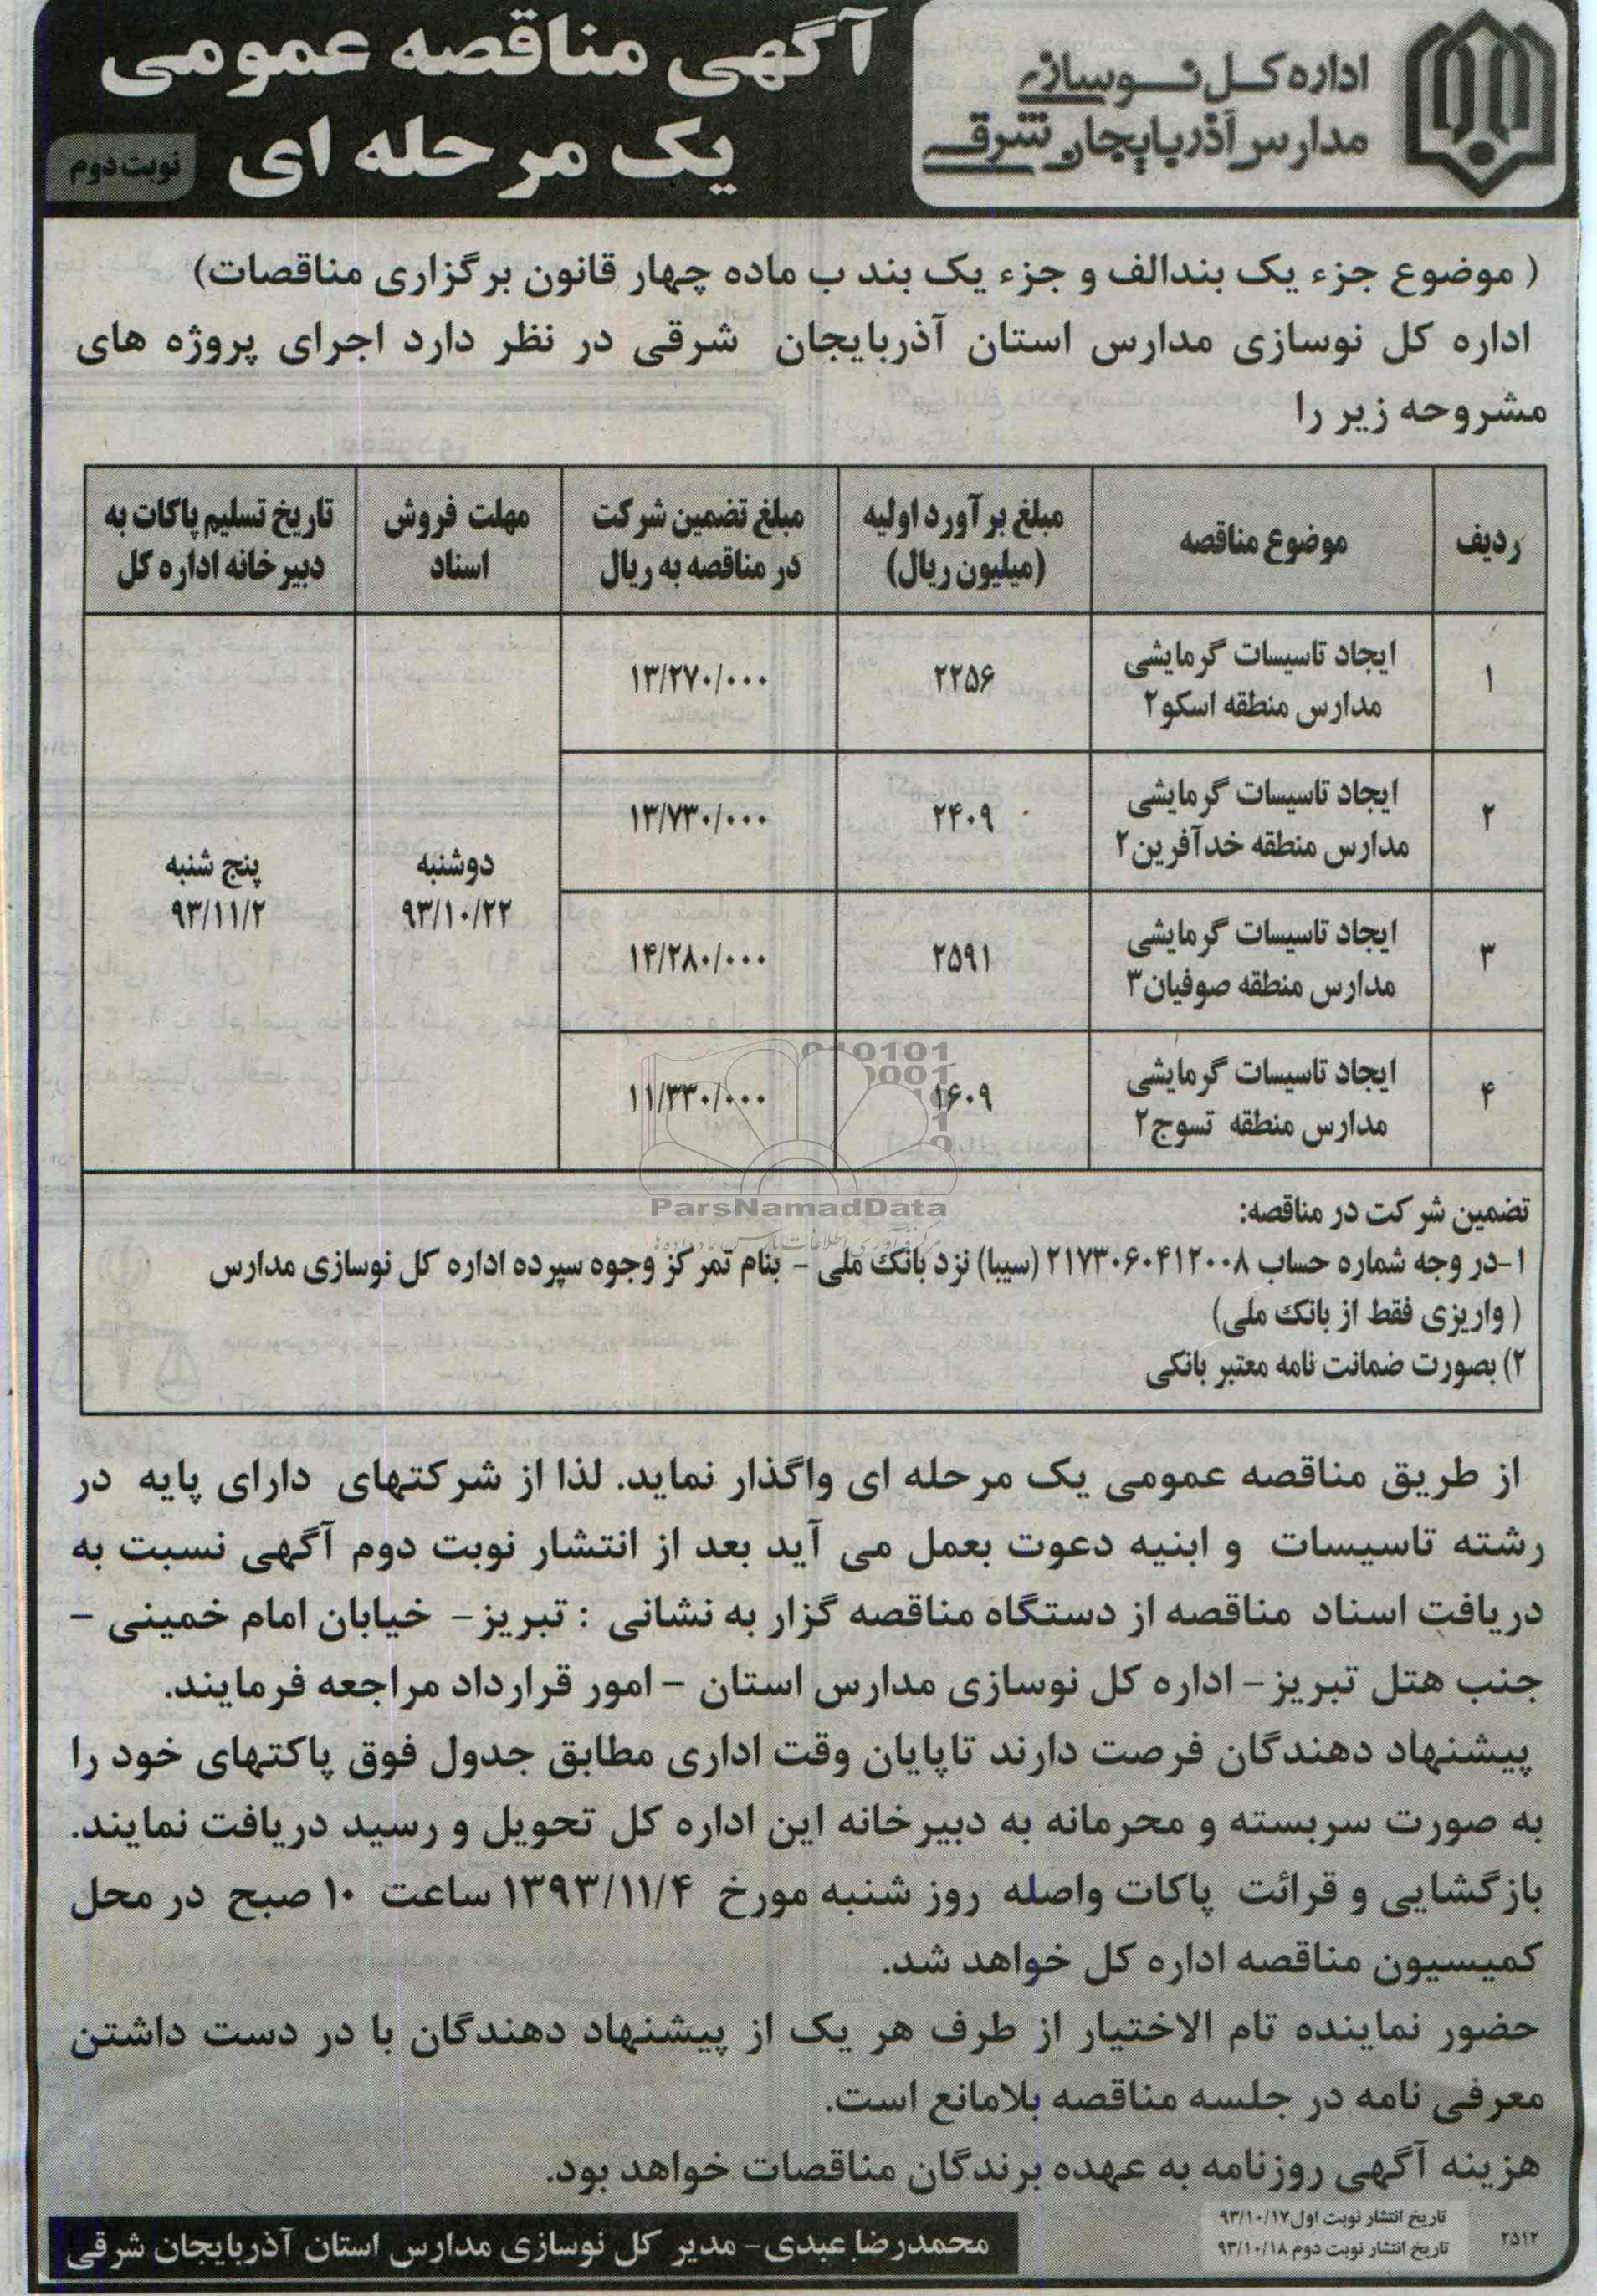 اداره کل نوسازی
مدارس آذربایجان شرقی
آگهی مناقصه عمومی
یک مرحله ای
نوبت دوم
( موضوع جزء یک بندالف و جزء یک بند ب ماده چهار قانون برگزاری مناقصات)
اداره کل نوسازی مدارس استان آذربایجان شرقی در نظر دارد اجرای پروژه های
مشروحه زیر را
ردیف
موضوع مناقصه
مبلغ برآورد اولیه
(میلیون ریال)
مبلغ تضمین شرکت
در مناقصه به ریال
مهلت فروش
اسناد
تاریخ تسلیم پاکات به
دبیرخانه اداره کل
۱
ایجاد تاسیسات گرمایشی
مدارس منطقه اسکو۲
۲۲۵۶
۱۳/۲۷۰/۰۰۰
۲
ایجاد تاسیسات گرمایشی
مدارس منطقه خدآفرین۲
۲۴۰۹
۱۳/۷۳۰/۰۰۰
دوشنبه
۹۳/۱۰/۲۲
پنج شنبه
۹۳/۱۱/۲
۳
ایجاد تاسیسات گرمایشی
مدارس منطقه صوفیان۳
۲۵۹۱
۱۴/۲۸۰/۰۰۰
۴
ایجاد تاسیسات گرمایشی
مدارس منطقه تسوج۲
۱۶۰۹
۱۱/۳۳۰/۰۰۰
ParsNamadData
تضمین شرکت در مناقصه:
۱-در وجه شماره حساب ۲۱۷۳۰۶۰۴۱۲۰۰۸ (سیبا) نزد بانک ملی - بنام تمرکز وجوه سپرده اداره کل نوسازی مدارس
( واریزی فقط از بانک ملی)
۲) بصورت ضمانت نامه معتبر بانکی
از طریق مناقصه عمومی یک مرحله ای واگذار نماید. لذا از شرکتهای دارای پایه در
رشته تاسیسات و ابنیه دعوت بعمل می آید بعد از انتشار نوبت دوم آگهی نسبت به
دریافت اسناد مناقصه از دستگاه مناقصه گزار به نشانی : تبریز- خیابان امام خمینی -
جنب هتل تبریز- اداره کل نوسازی مدارس استان - امور قرارداد مراجعه فرمایند.
پیشنهاد دهندگان فرصت دارند تاپایان وقت اداری مطابق جدول فوق پاکتهای خود را
به صورت سربسته و محرمانه به دبیرخانه این اداره کل تحویل و رسید دریافت نمایند.
بازگشایی و قرائت پاکات واصله روز شنبه مورخ ۱۳۹۳/۱۱/۴ ساعت ۱۰ صبح در محل
کمیسیون مناقصه اداره کل خواهد شد.
حضور نماینده تام الاختیار از طرف هر یک از پیشنهاد دهندگان با در دست داشتن
معرفی نامه در جلسه مناقصه بلامانع است.
هزینه آگهی روزنامه به عهده برندگان مناقصات خواهد بود.
تاریخ انتشار نوبت اول۹۳/۱۰/۱۷
تاریخ انتشار نوبت دوم ۹۳/۱۰/۱۸
۲۵۱۲
محمدرضا عبدی- مدیر کل نوسازی مدارس استان آذربایجان شرقی